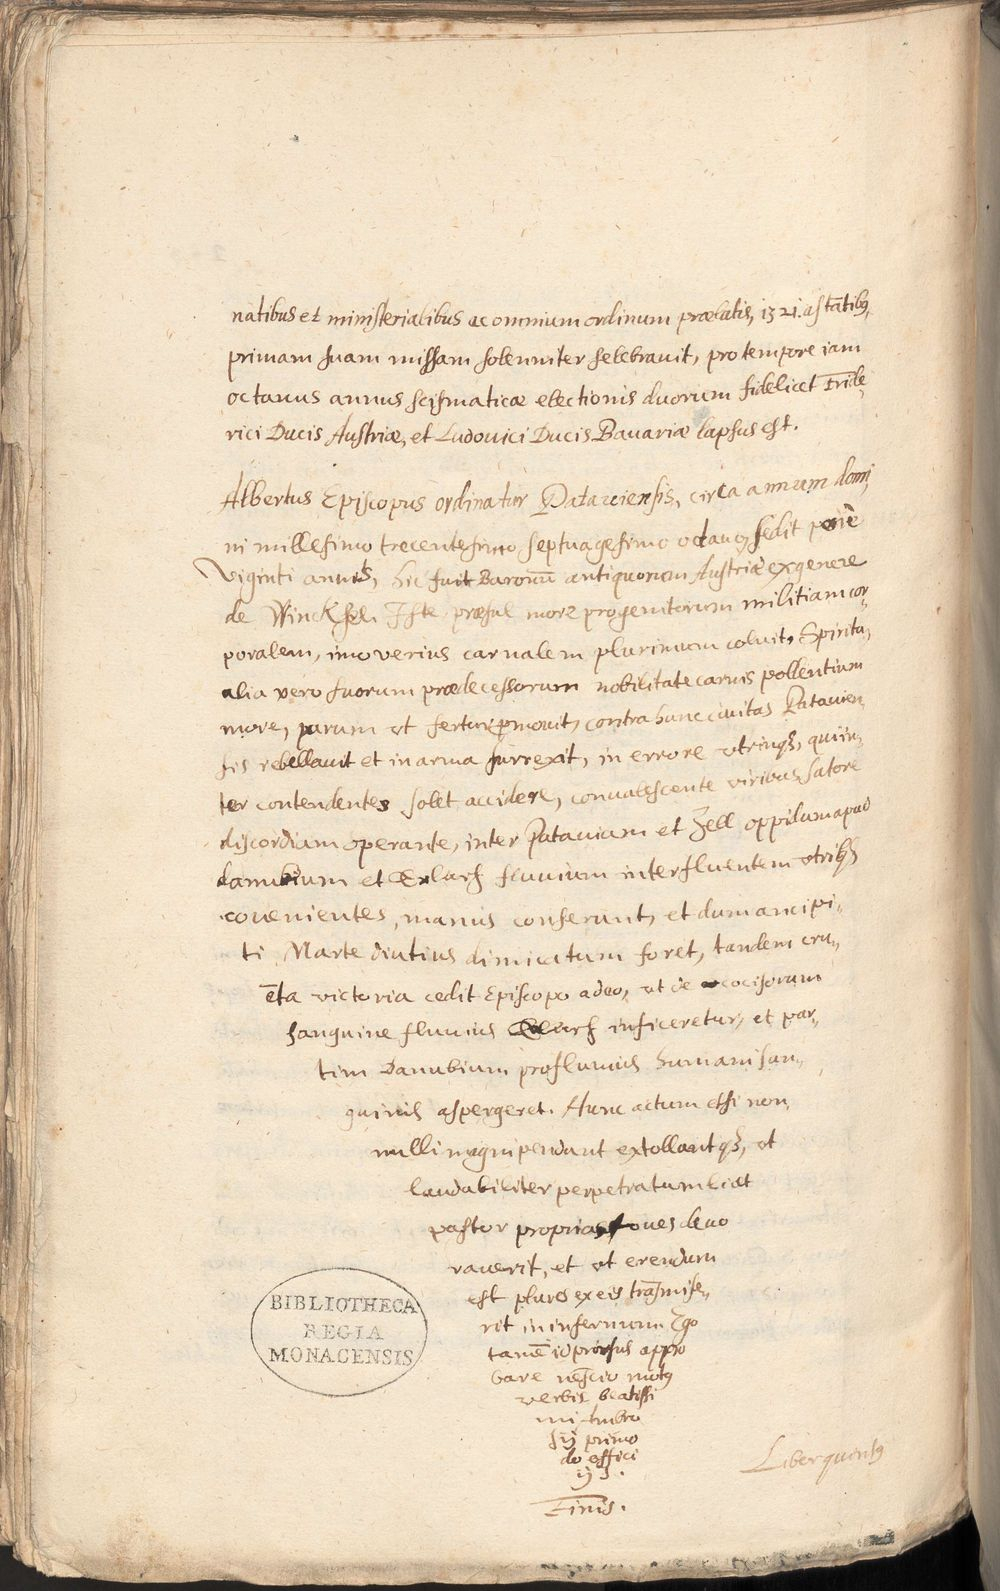 natibus et ministerialibus ac omnium ordinum prælatis, 1321. astātibꝫ,
primam suam missam solenniter selebrauit, pro tempore iam
octauus annus scismaticæ electionis duorum sidelicet Fride,
rici Ducis Austriæ, et Ludouici Ducis Bauariæ lapsus est.
Albertus Episcopus ordinatur Patauiensis, circa annum domi,
ni millesimo trecentesimo septuagesimo octauo, sedit penè
viginti annis, hic fuit Baronū antiquorum Austriæ ex genere
de Winckhel. Iste præsul more progenitorum militiam cor,
poralem, imo verius carnalem plurimum coluit, Spiritu,
alia vero suorum prædecessorum nobilitate carnis pollentium
more, parum vt fertur pmouit, contra hunc ciuitas Patauien,
sis rebellauit et in arma surrexit, in errore vtrinqꝫ, qui in,
ter contendentes solet accidere, conualescente viribus satore
discordiam operante, inter Patauiam et Zell oppidum apud
danubium et Erlarf fluuium interfluentem vtribqꝫ
couenientes, manus conferunt, et dum ancipi,
ti Marte diutius dimicatum foret, tandem cru,
ēta victoria cedit Episcopo adeo, vt de occisorum
sanguine fluuius Erlarf inficeretur, et par,
tim Danubium profluuius humani san,
guinis aspergeret. Hunc actum etsi non,
nulli magnipendant extollantqꝫ, vt
laudabiliter perpetratum licet
pastor proprias oues deuo
rauerit, et vt erendum
est plures ex eis trāsmise,
rit in infernum. Ego
tamē id prorsus appro
bare nescio motꝫ
verbis beatissi
mi Ambro
sij primo
de offici
ijs.
Finis.
Liber quintꝫ
BIBLIOTHECA
REGIA
MONACENSIS